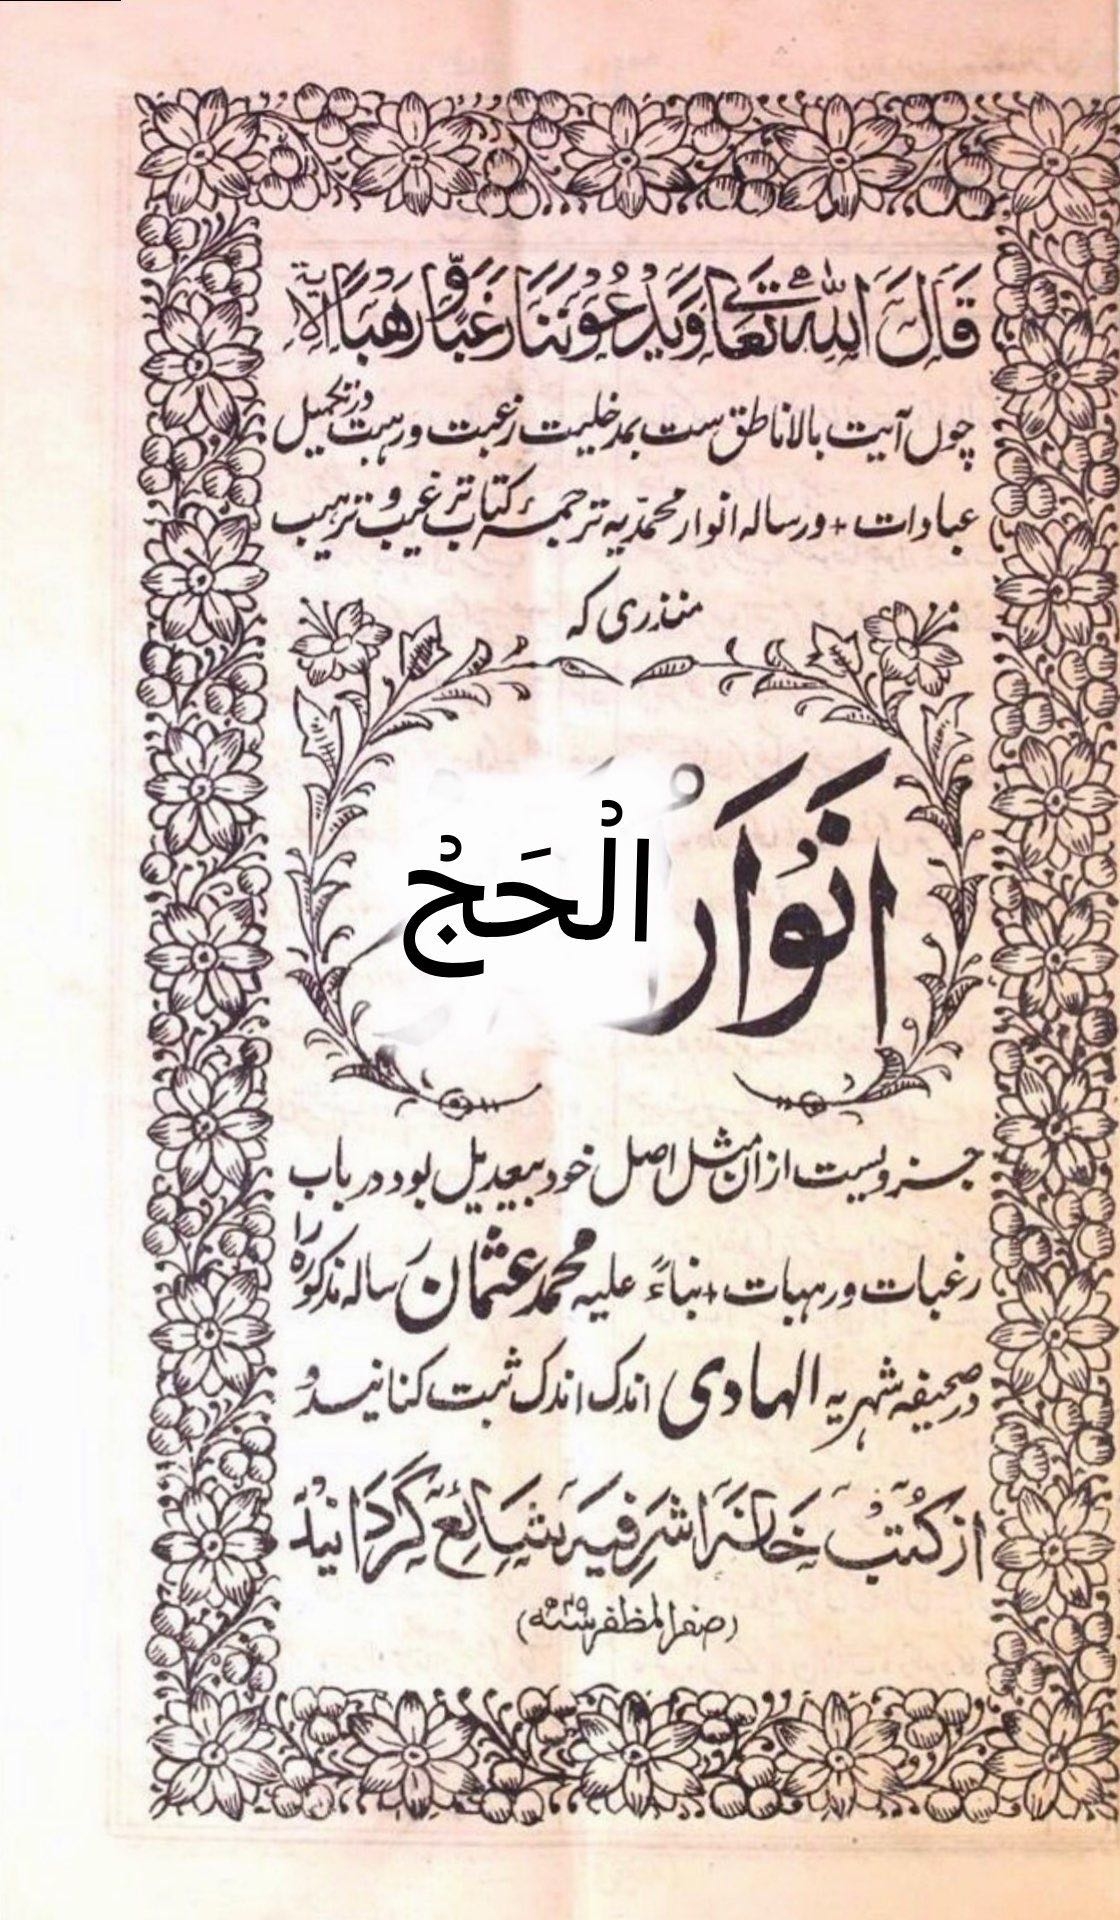 قَالَ اللہُ تَعَالٰی وَیَدْعُوْنَنَا رَغَبًا وَّرَهَبًا الآیۃ
چوں آیت بالا ناطق ست بمدخلیت رغبت ورہبت در تکمیل
عبادات + ورسالہ انوار محمدیہ ترجمۂ کتاب ترغیب و ترہیب
منذری کہ
اَنْوَارُ الْحَجْ
جزویست ازان مثل اصل خود بیعدیل بود در باب
رغبات ورہبات + بناءً علیہ محمد عثمان رسالہ مذکورہ را
در صحیفہ شہریہ الہادی اندک اندک ثبت کنانیدو
از کُتُب خَانَہ اَشرَفِیَہ شَائِع گَردَانِید
(صفر المظفر سنہ)